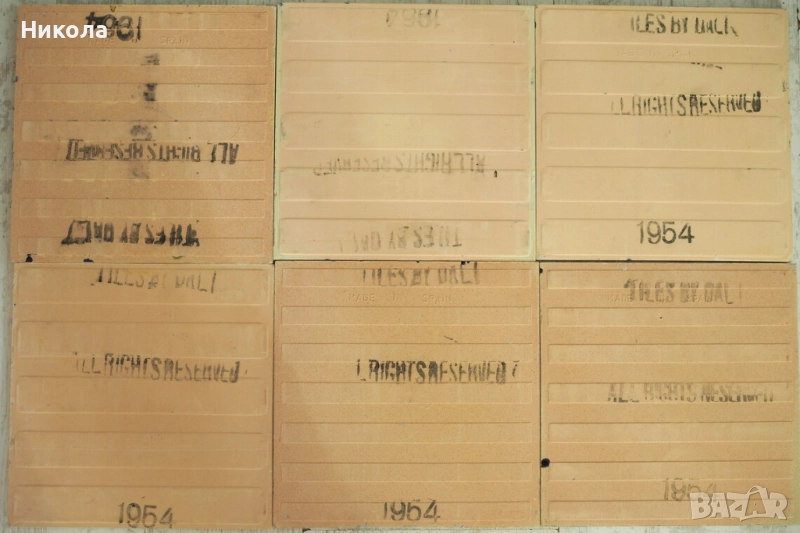 Никола
1954
ALL RIGHTS RESERVED
TILES BY DALI
1954
ALL RIGHTS RESERVED
TILES BY DALI
TILES BY DALI
ALL RIGHTS RESERVED
1954
TILES BY DALI
ALL RIGHTS RESERVED
1954
TILES BY DALI
MADE IN SPAIN
L RIGHTS RESERVED
1954
TILES BY DALI
ALL RIGHTS RESERVED
1954
BAZAR